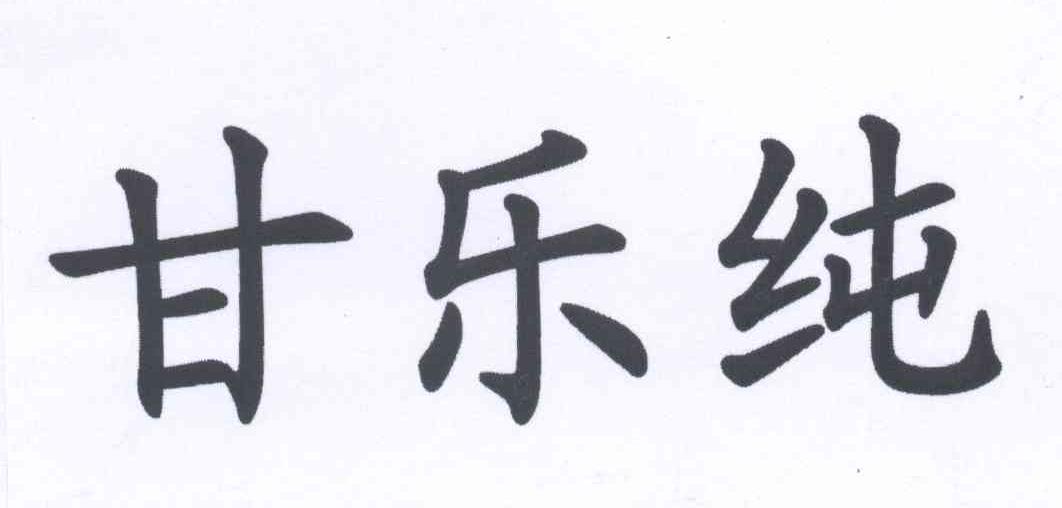 甘乐纯